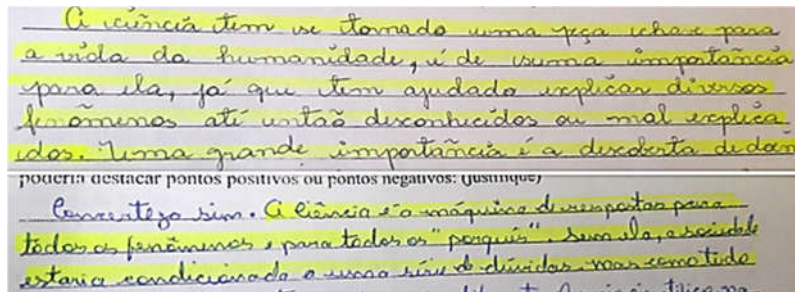 A ciência tem se tornado uma peça chave para
a vida da humanidade, é de suma importância
para ela, já que tem ajudado explicar diversos
fenômenos até então desconhecidos ou mal explica
dos. Uma grande importância é a descoberta de doen
poderia destacar pontos positivos ou pontos negativos? (Justifique)
Com certeza sim. A Ciência é a máquina de respostas para
todos os fenômenos e para todos os "porquês". Sem ela, a sociedade
estaria condicionada a uma série de dúvidas, mas como tudo